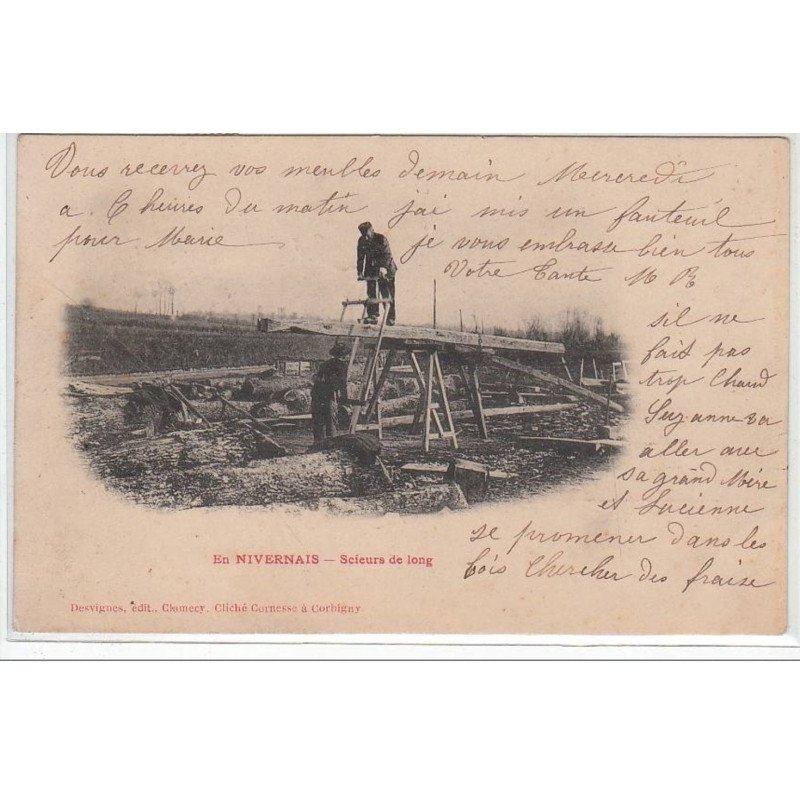 Vous recevrez vos meubles demain Mercredi
a 6 heures du matin j'ai mis un fauteuil
pour Marie je vous embrasse bien tous
Votre Tante M R
sil ne
fait pas
trop chaud
Suzanne va
aller avec
sa grand Mère
et Lucienne
se promener dans les
bois chercher des fraise
En NIVERNAIS — Scieurs de long
Desvignes, édit., Clamecy. Cliché Cornesse à Corbigny